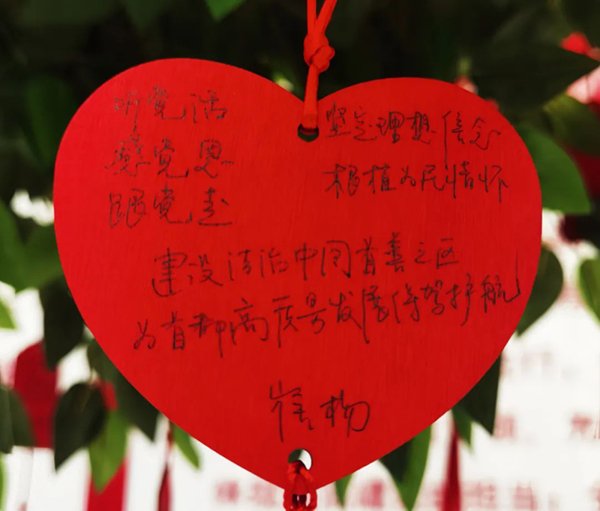 听党话
感党恩
跟党走
坚定理想信念
根植为民情怀
建设法治中国首善之区
为首都高质量发展保驾护航
崔杨